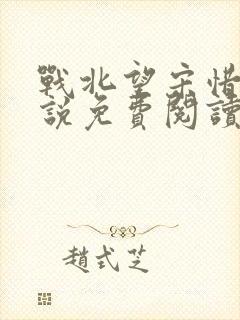 戰北望宋惜
說免費閱讀
趙式芝